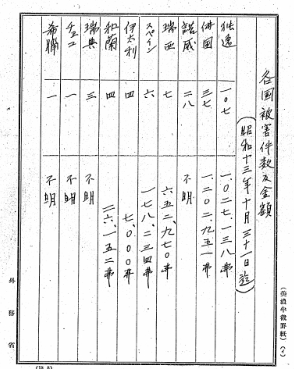 各国被害件数及金額
(昭和十三年十月三十一日迄)
独逸 一〇七 一、〇二七、一三八弗
仏国 三七 一、二〇二、九五一弗
諾威 二八 不明
瑞西 七 六五二、九七〇弗
スペイン 六 一七八、二三四弗
伊太利 四 七、〇〇〇弗
和蘭 四 二六、一五二弗
瑞典 三 不明
チェコ 一 不明
希臘 一 不明
外務省